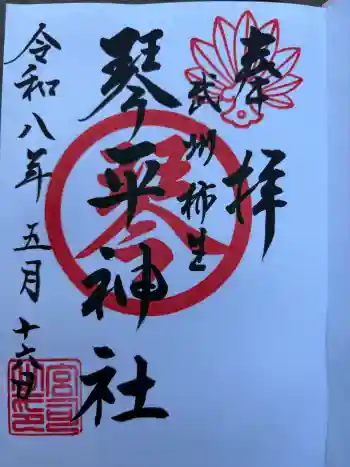 奉拝
武州柿生
琴平神社
令和八年五月十六日
琴